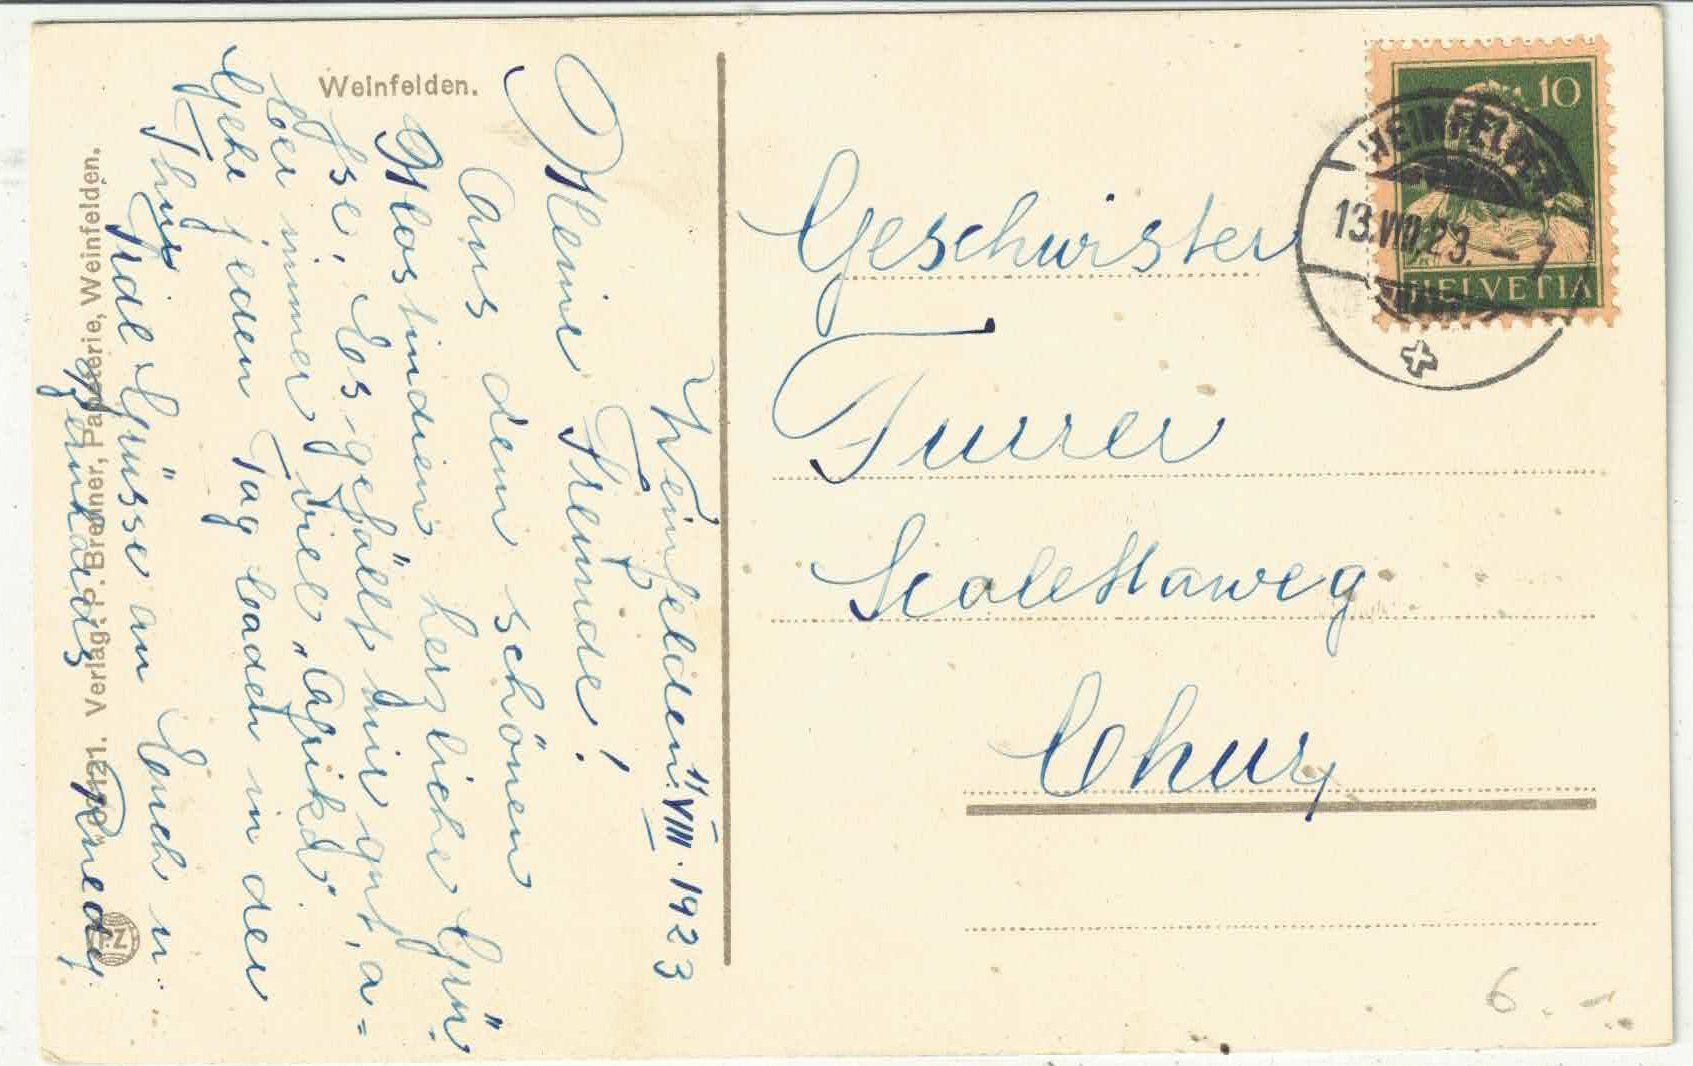 Weinfelden.
Weinfelden. 11. VIII. 1923
Meine Freunde!
Aus dem schönen
Mostindien herzliche Grü-
sse. Es gefällt mir gut, a-
ber immer viel „Afrika“.
Gehe jeden Tag baden in der
Thur. Viel Grüsse an Euch u.
10
HELVETIA
WEINFELDEN
13.VIII.23. – 7
Geschwister
Furrer
Scalettaweg
Chur
Verlag: P. Brenner, Papeterie, Weinfelden.
6.-